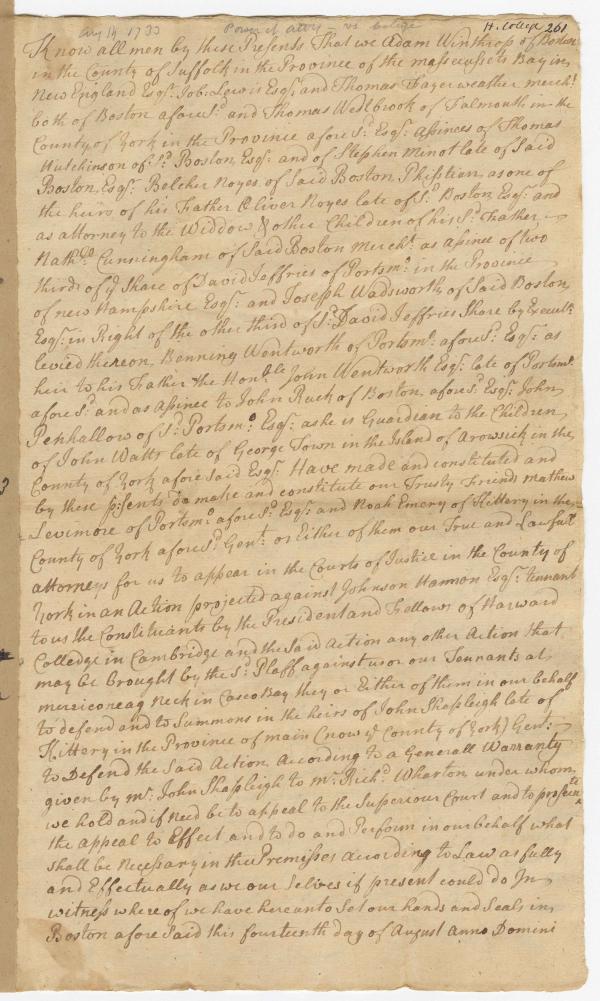 Aug 14 1733 Power of atty - vs College H. College 261
Know all men by these Presents That we Adam Winthrop of Boston
in the County of Suffolk in the Province of the massacusets Bay in
New England Esqr. Job: Lewis Esqr. and Thomas Fayerweather mercht.
both of Boston afore Sd. and Thomas Westbrook of Falmouth in the
County of York in the Province afore Sd. Esqr. Assinees of Thomas
Hutchinson of Sd. Boston, Esqr. and of Stephen Minot late of Said
Boston, Esqr. Belcher Noyes of Said Boston Phisitien, as one of
the heirs of his Father Oliver Noyes late of Sd. Boston Esqr. and
as attorney to the Widdow, & other Children of his Sd. Father
Nathll. Cunningham of Said Boston Mercht. as assinee of two
thirds of ye Share of David Jeffries of Portsmo. in the Province
of new Hampshire Esqr. and Joseph Wadsworth of Said Boston
Esqr. in Right of the other third of Sd. David Jeffries Share by Execution
levied thereon, Benning Wentworth of Portsmo. afore Sd. Esqr. as
heir to his Father the Honble. John Wentworth Esqr. late of Portsmo.
afore Sd. and as Assinee to John Ruck of Boston, afore Sd. Esqr. John
Penhallow of Sd. Portsmo. Esqr. as he is Guardian to the Children
of John Watts late of George Town in the Island of Arowsick in the
County of York afore Said Esqr. Have made and constituted and
by these prsents do make and constitute our Trusty Friends mathew
Levimore of Portsmo. afore Sd. Esqr. and Noah Emery of Kittery in the
County of York afore Sd. Gent. or Either of them our True and Lawfull
attorneys for us to appear in the Courts of Justice in the County of
York in an Action projected against Johnson Harmon Esqr. tennant
to us the Constituants by the President and Fellows of Harward
Colledge in Cambridge and the Said Action any other Action that
may be brought by the Sd. Plaff against us or our Tennants at
mericoneag neck in Casco Bay they or Either of them in our behalf
to defend and to Summons in the heirs of John Shapleigh late of
Kittery in the Province of main (now ye County of York) Gent.
to Defend the Said Action, According to a Generall Warranty
given by mr. John Shapleigh to mr. Richd. Wharton, under whom
we hold and if need be to appeal to the Superiour Court and to prosecute
the appeal to Effect and to do and Perform in our behalf what
Shall be Necessary in the Premisses according to Law as fully
and Effectually as we our Selves if present could do In
witness where of we have hereunto Set our hands and Seals in
Boston afore Said this fourteenth day of August Anno Domini